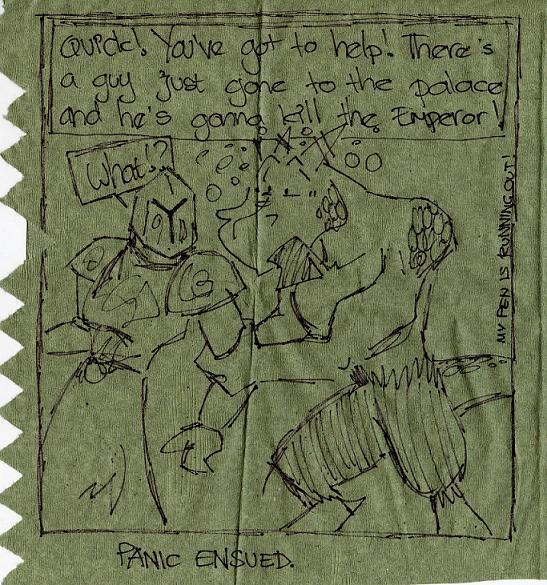 Quick! You've got to help! There's
a guy just gone to the palace
and he's gonna kill the Emperor!
What!?
MY PEN IS RUNNING OUT!
PANIC ENSUED.